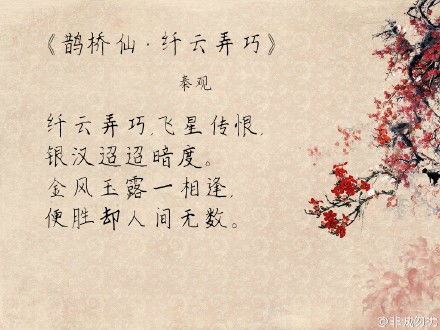 《鹊桥仙·纤云弄巧》
秦观
纤云弄巧,飞星传恨,
银汉迢迢暗度。
金风玉露一相逢,
便胜却人间无数。